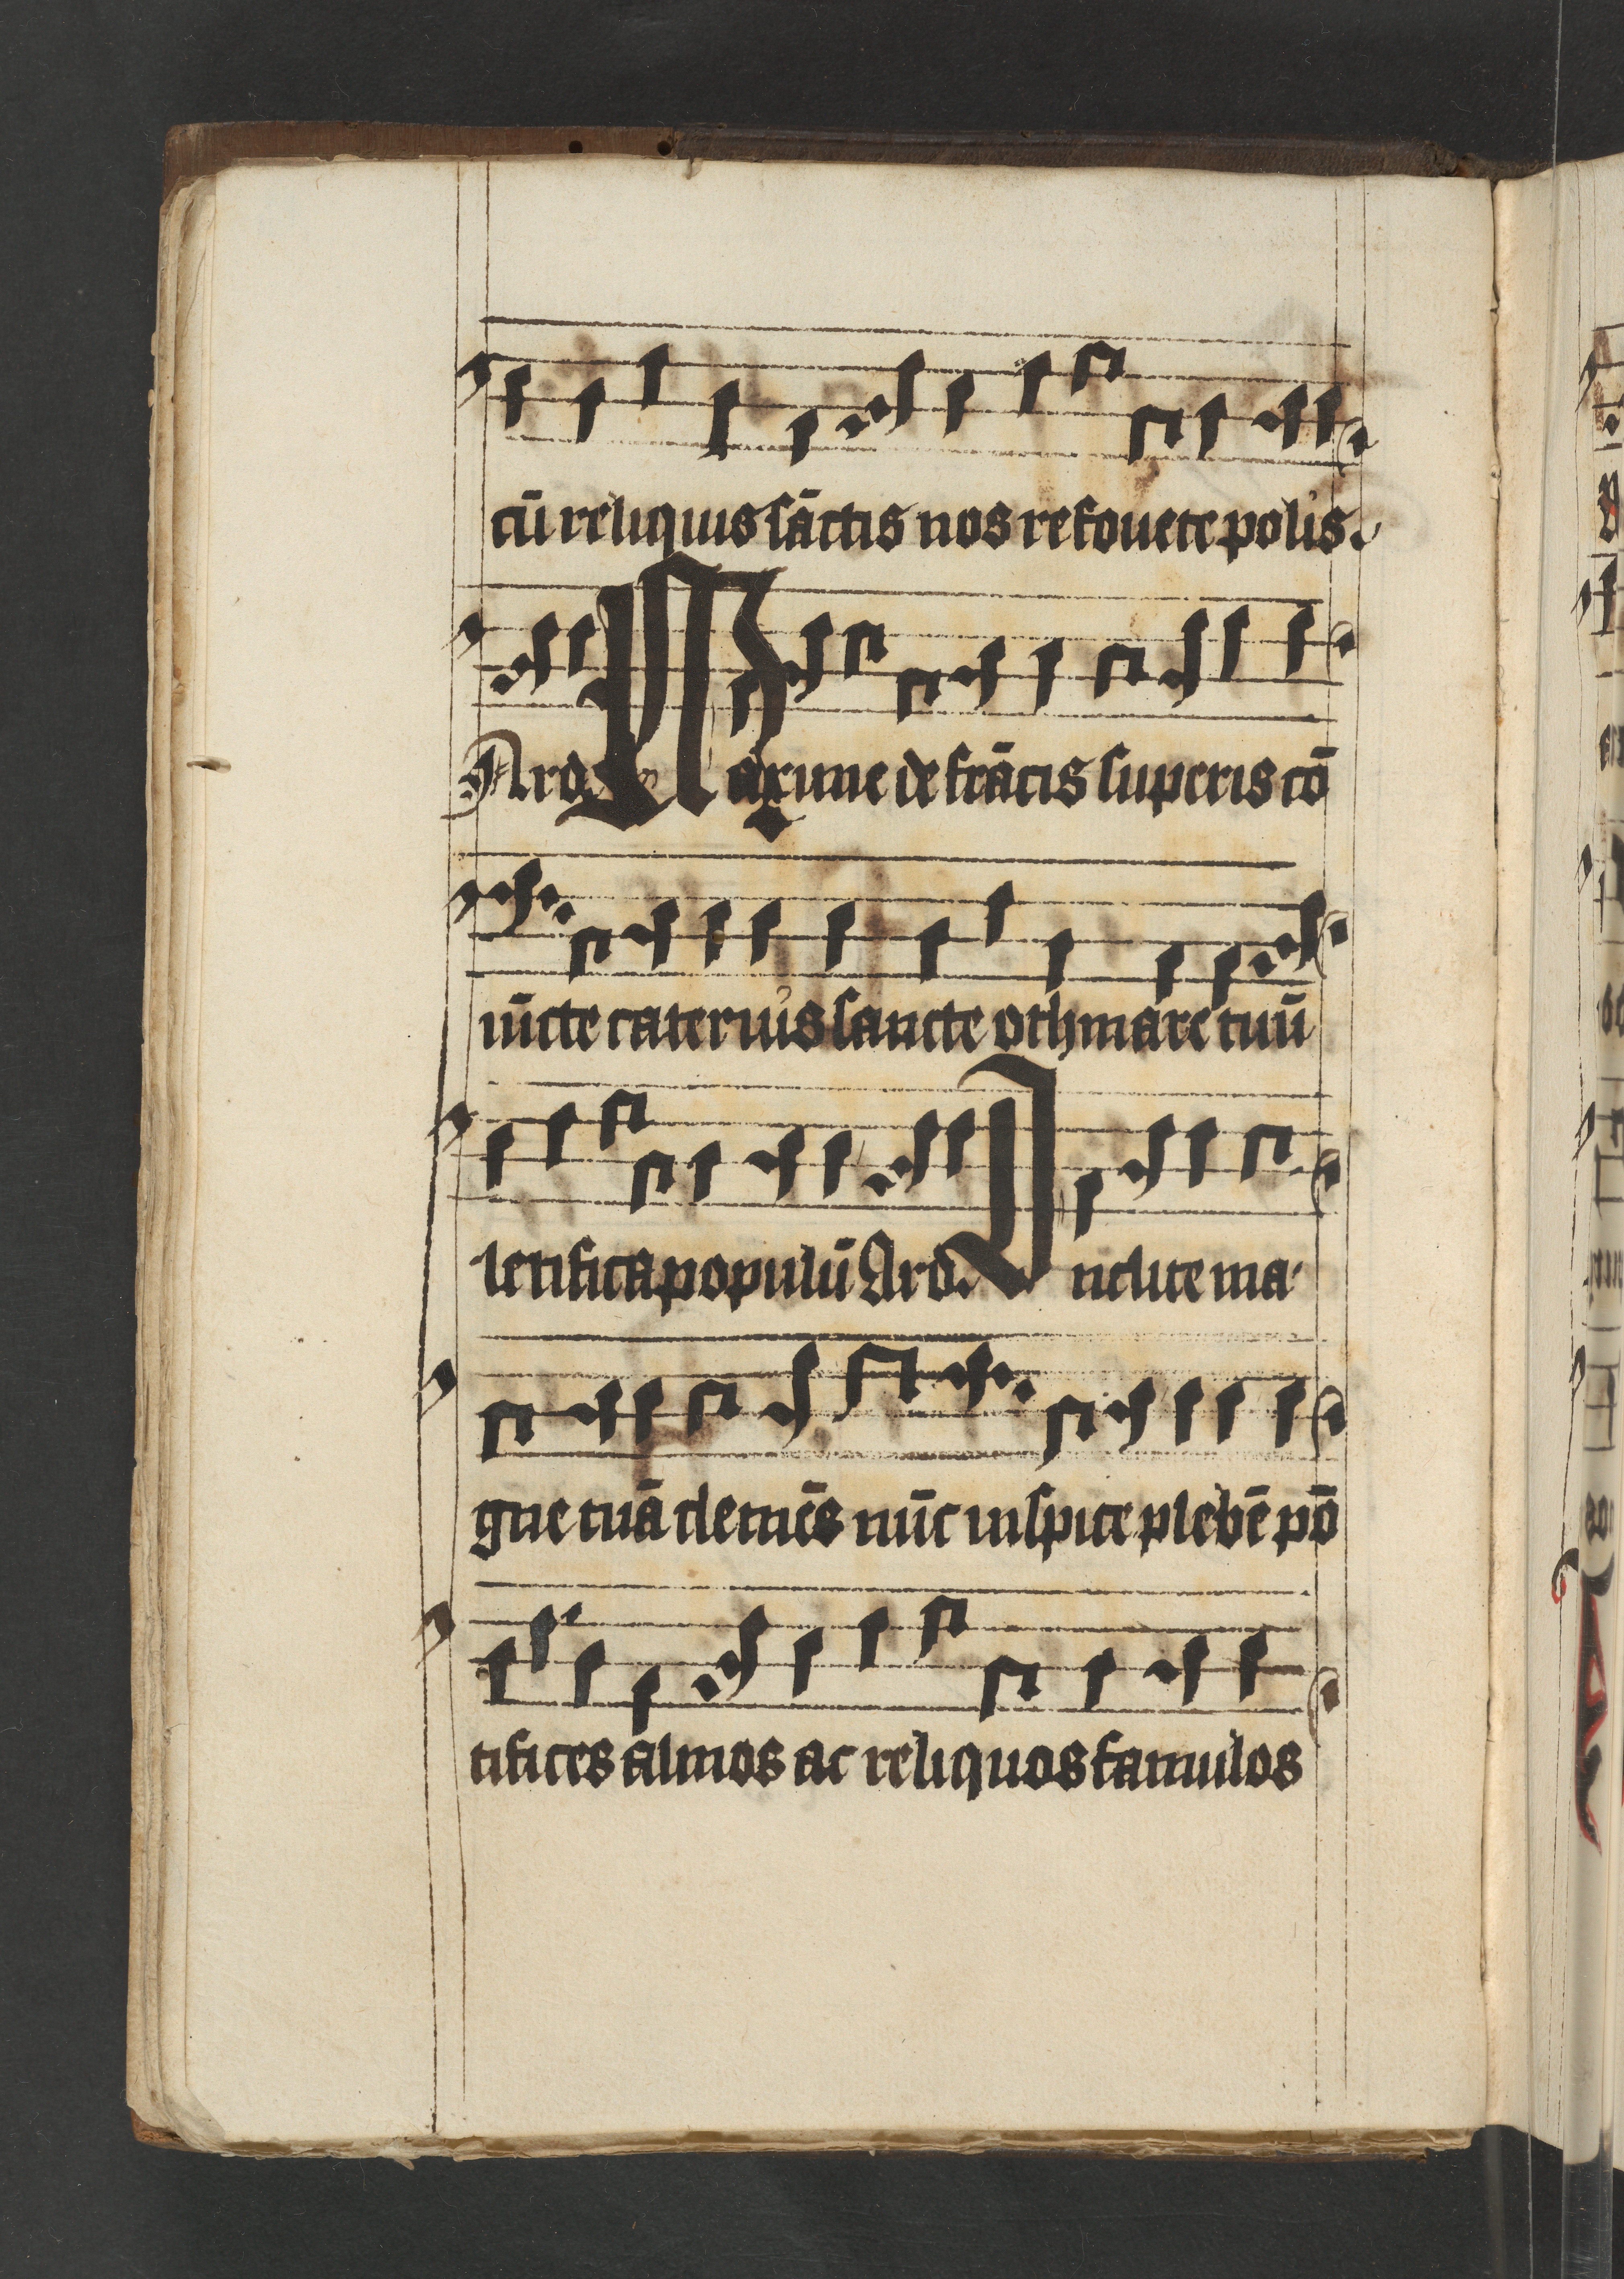 cū reliquis sāctis nos refouete polis.
Ard. Maxime de frācis superis cō
iūcte cateruis sancte othmare tuū
letifica populū Ard. Inclite ma-
gne tuā clemēs nūc inspice plebē pō
tifices almos ac reliquos famulos